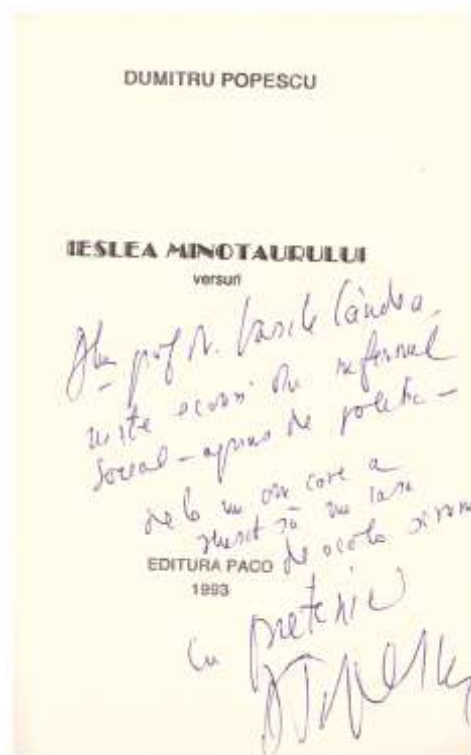 DUMITRU POPESCU
IESLEA MINOTAURULUI
versuri
prof. dr. Vasile Cândea,
niște scorni din infernul
social – apus de politic –
de la un om care a
reușit să nu iasă
de acolo
EDITURA PACO
1993
Cu prietenie
DPopescu